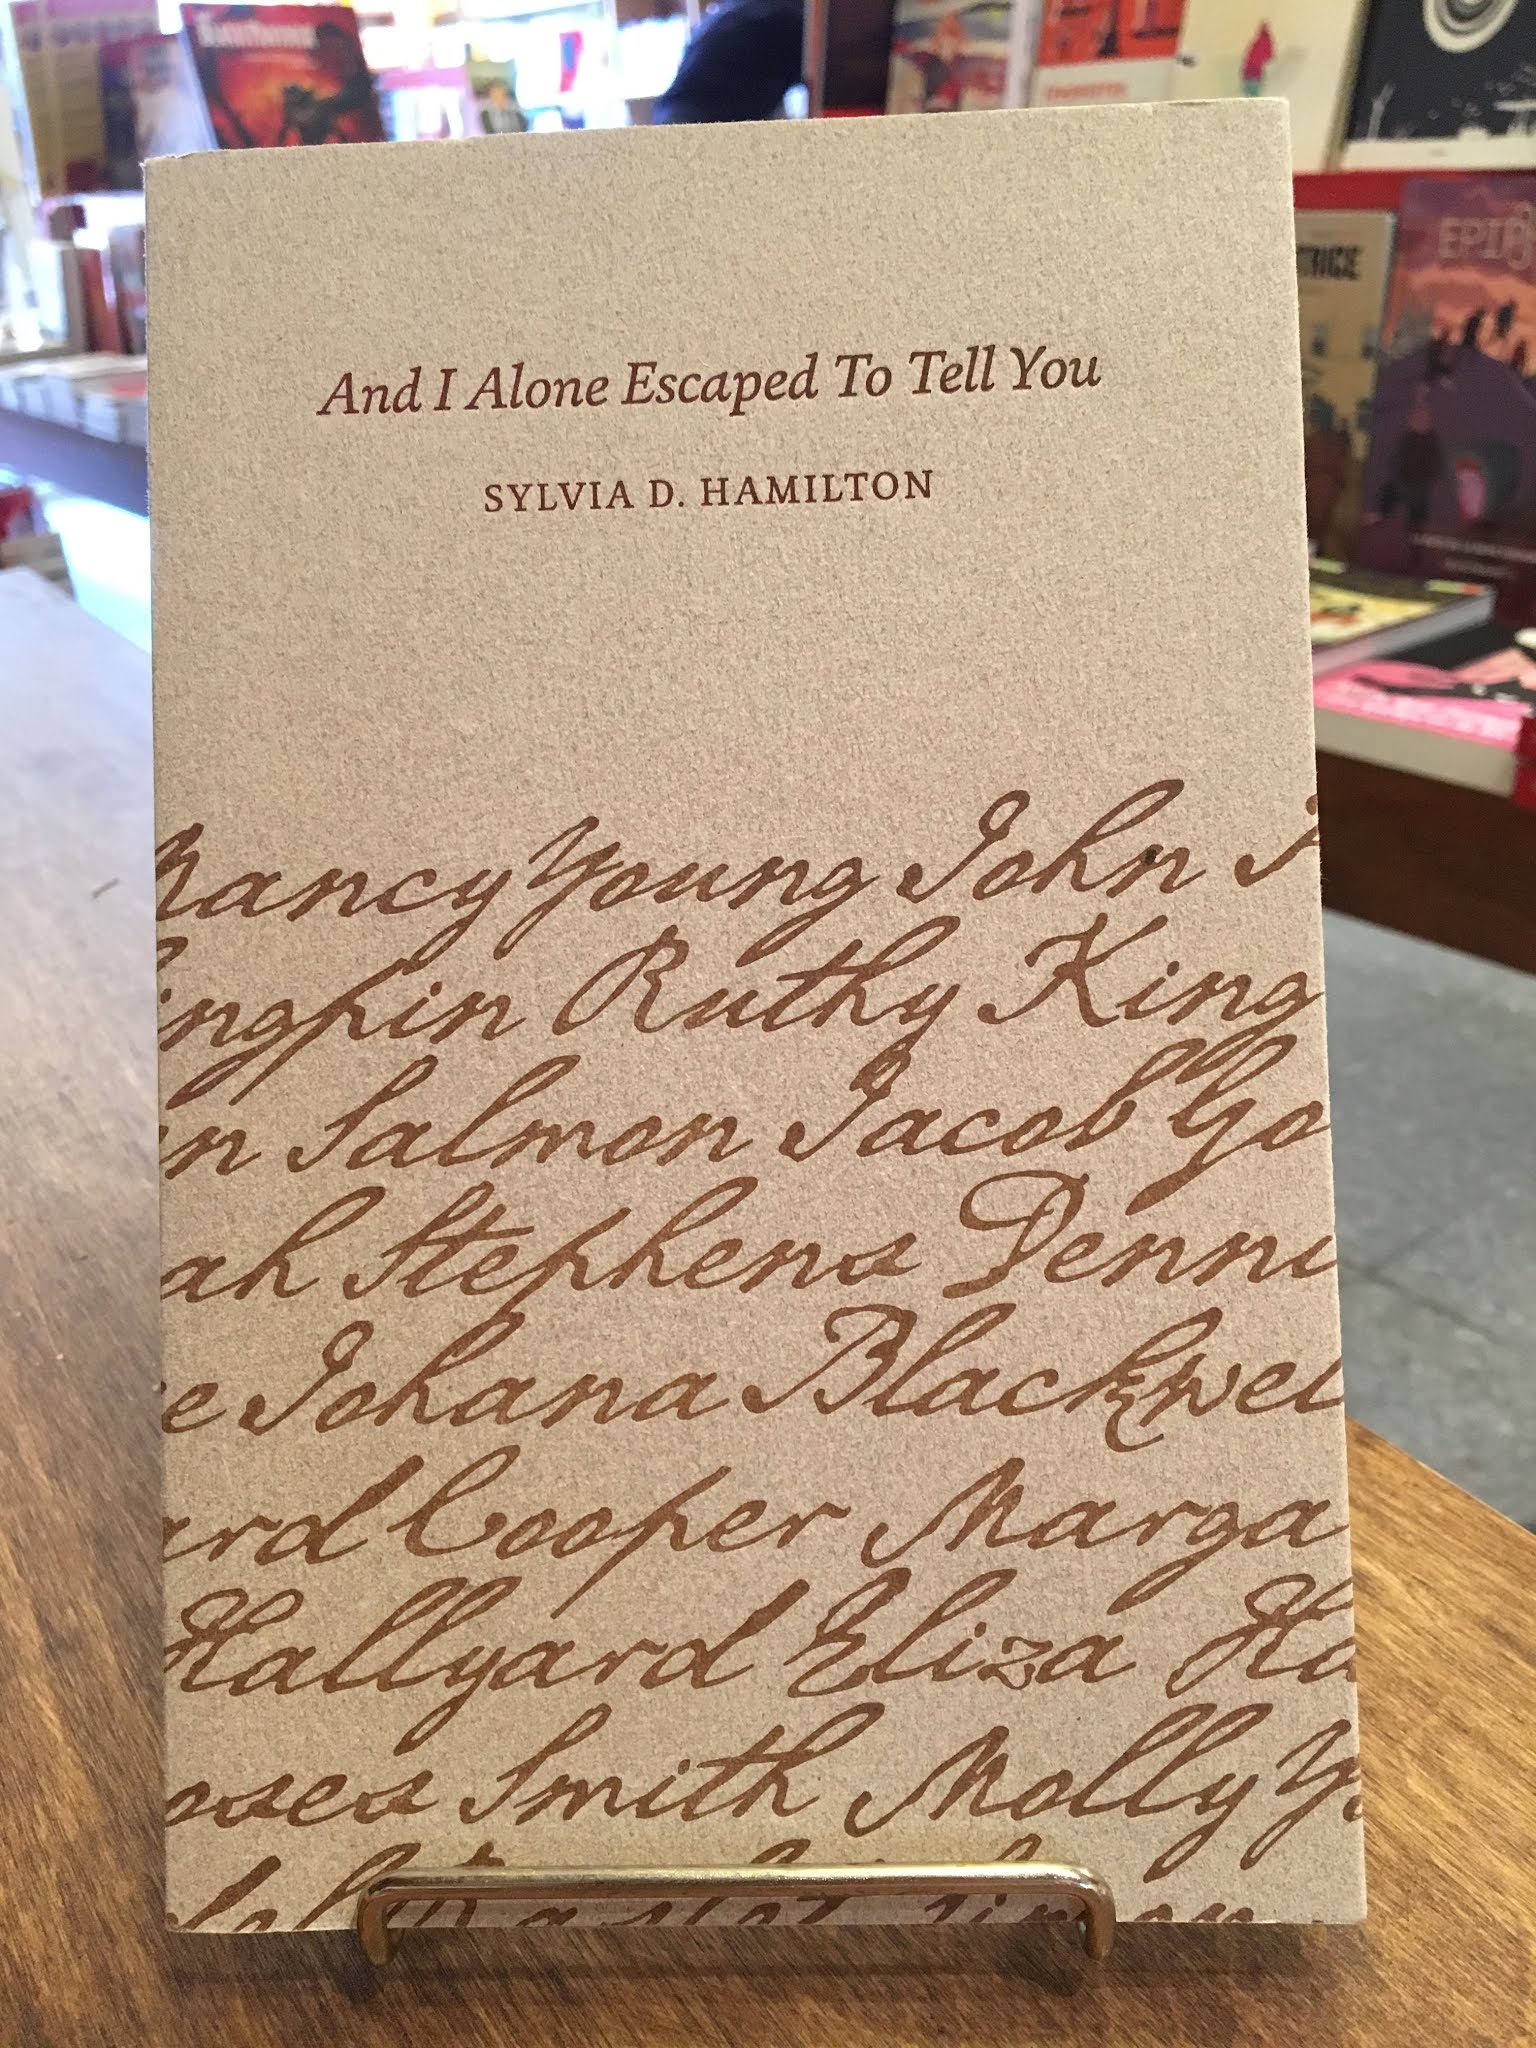 And I Alone Escaped To Tell You
SYLVIA D. HAMILTON
Nancy Young John
ingpin Ruthy King
n Salmon Jacob Yo
ah Stephens Denni
e Johana Blackwel
ard Cooper Marga
Hallyard Eliza Ha
oses Smith Molly Y
TRICE
EPIP